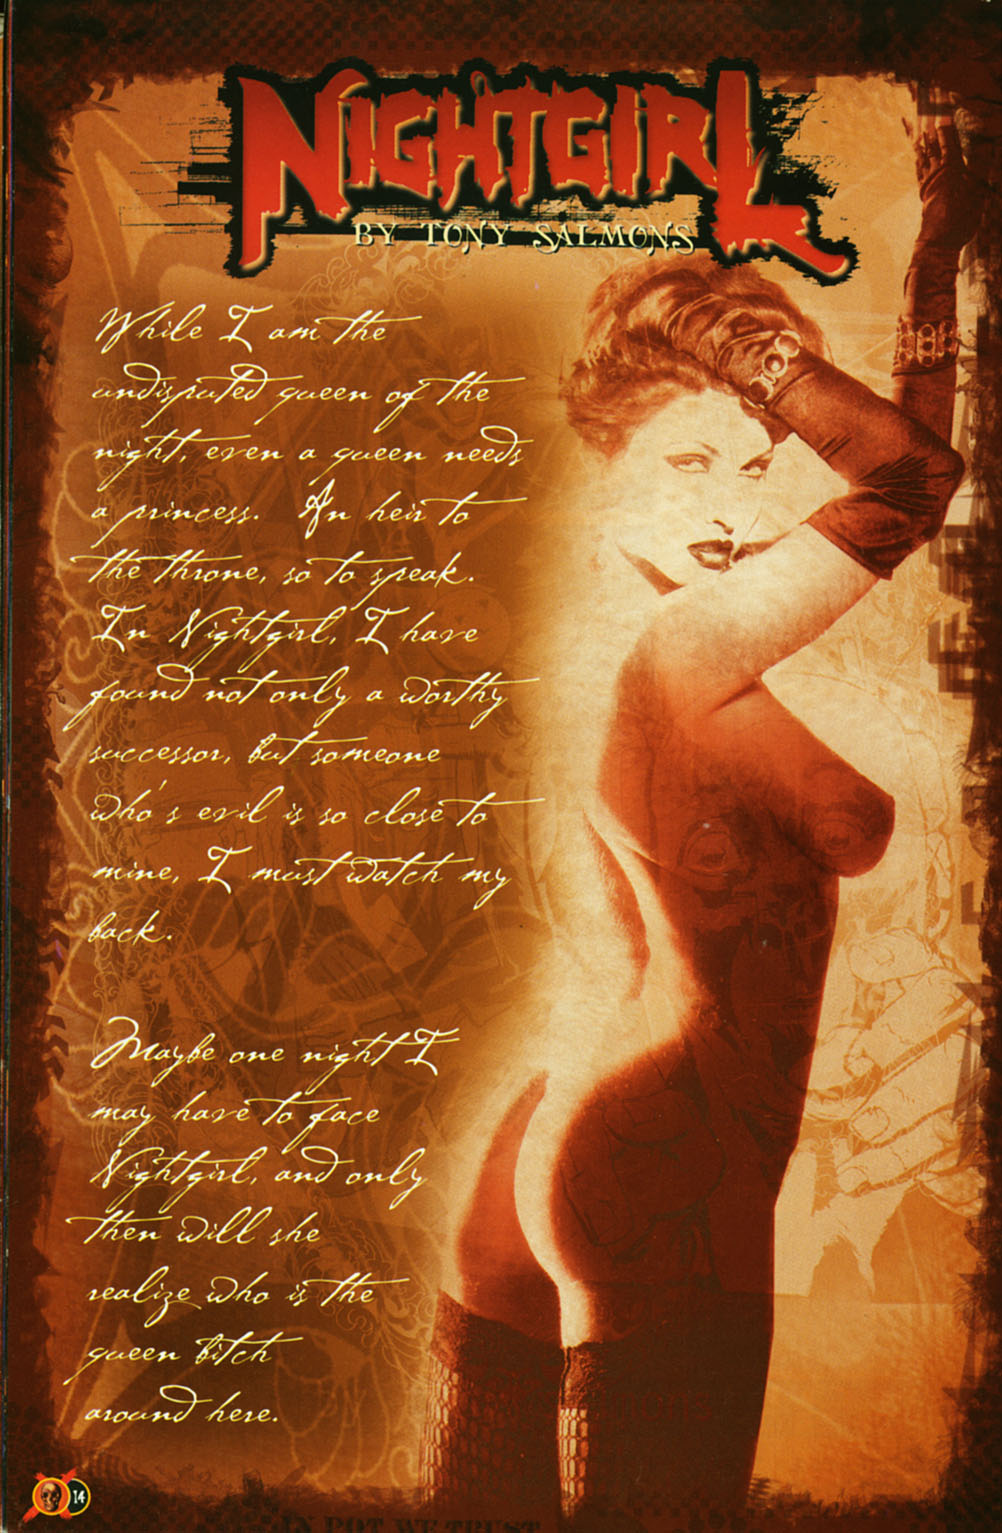 NIGHTGIRL
BY TONY SALMONS
While I am the
undisputed queen of the
night, even a queen needs
a princess. An heir to
the throne, so to speak.
In Nightgirl, I have
found not only a worthy
successor, but someone
who's evil is so close to
mine, I must watch my
back.
Maybe one night I
may have to face
Nightgirl, and only
then will she
realize who is the
queen bitch
around here.
14